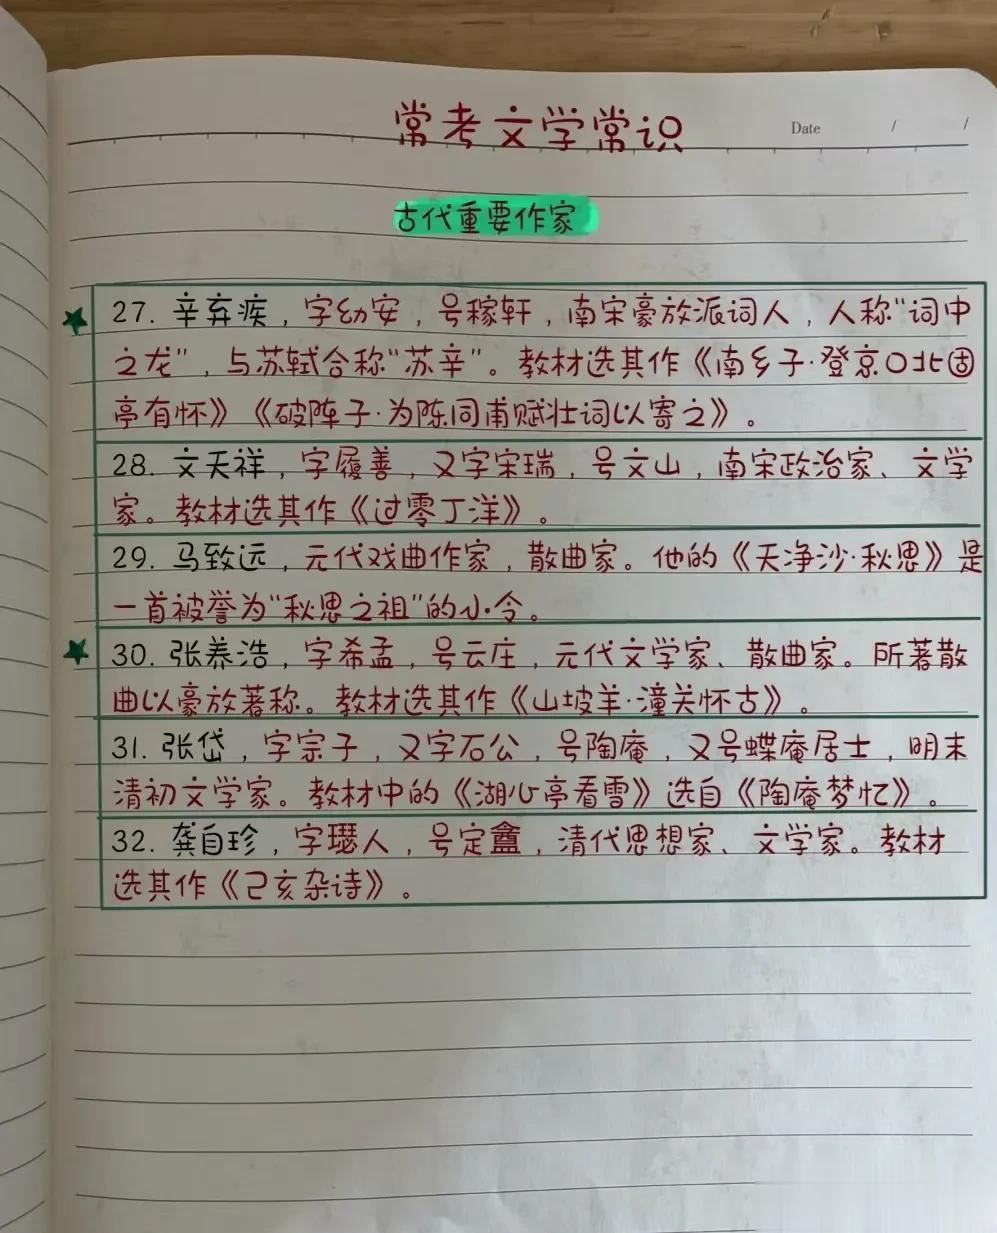 常考文学常识
Date / /
古代重要作家
★ 27. 辛弃疾，字幼安，号稼轩，南宋豪放派词人，人称“词中
之龙”，与苏轼合称“苏辛”。教材选其作《南乡子·登京口北固
亭有怀》《破阵子·为陈同甫赋壮词以寄之》。
28. 文天祥，字履善，又字宋瑞，号文山，南宋政治家、文学
家。教材选其作《过零丁洋》。
29. 马致远，元代戏曲作家，散曲家。他的《天净沙·秋思》是
一首被誉为“秋思之祖”的小令。
★ 30. 张养浩，字希孟，号云庄，元代文学家、散曲家。所著散
曲以豪放著称。教材选其作《山坡羊·潼关怀古》。
31. 张岱，字宗子，又字石公，号陶庵，又号蝶庵居士，明末
清初文学家。教材中的《湖心亭看雪》选自《陶庵梦忆》。
32. 龚自珍，字璱人，号定盦，清代思想家、文学家。教材
选其作《己亥杂诗》。